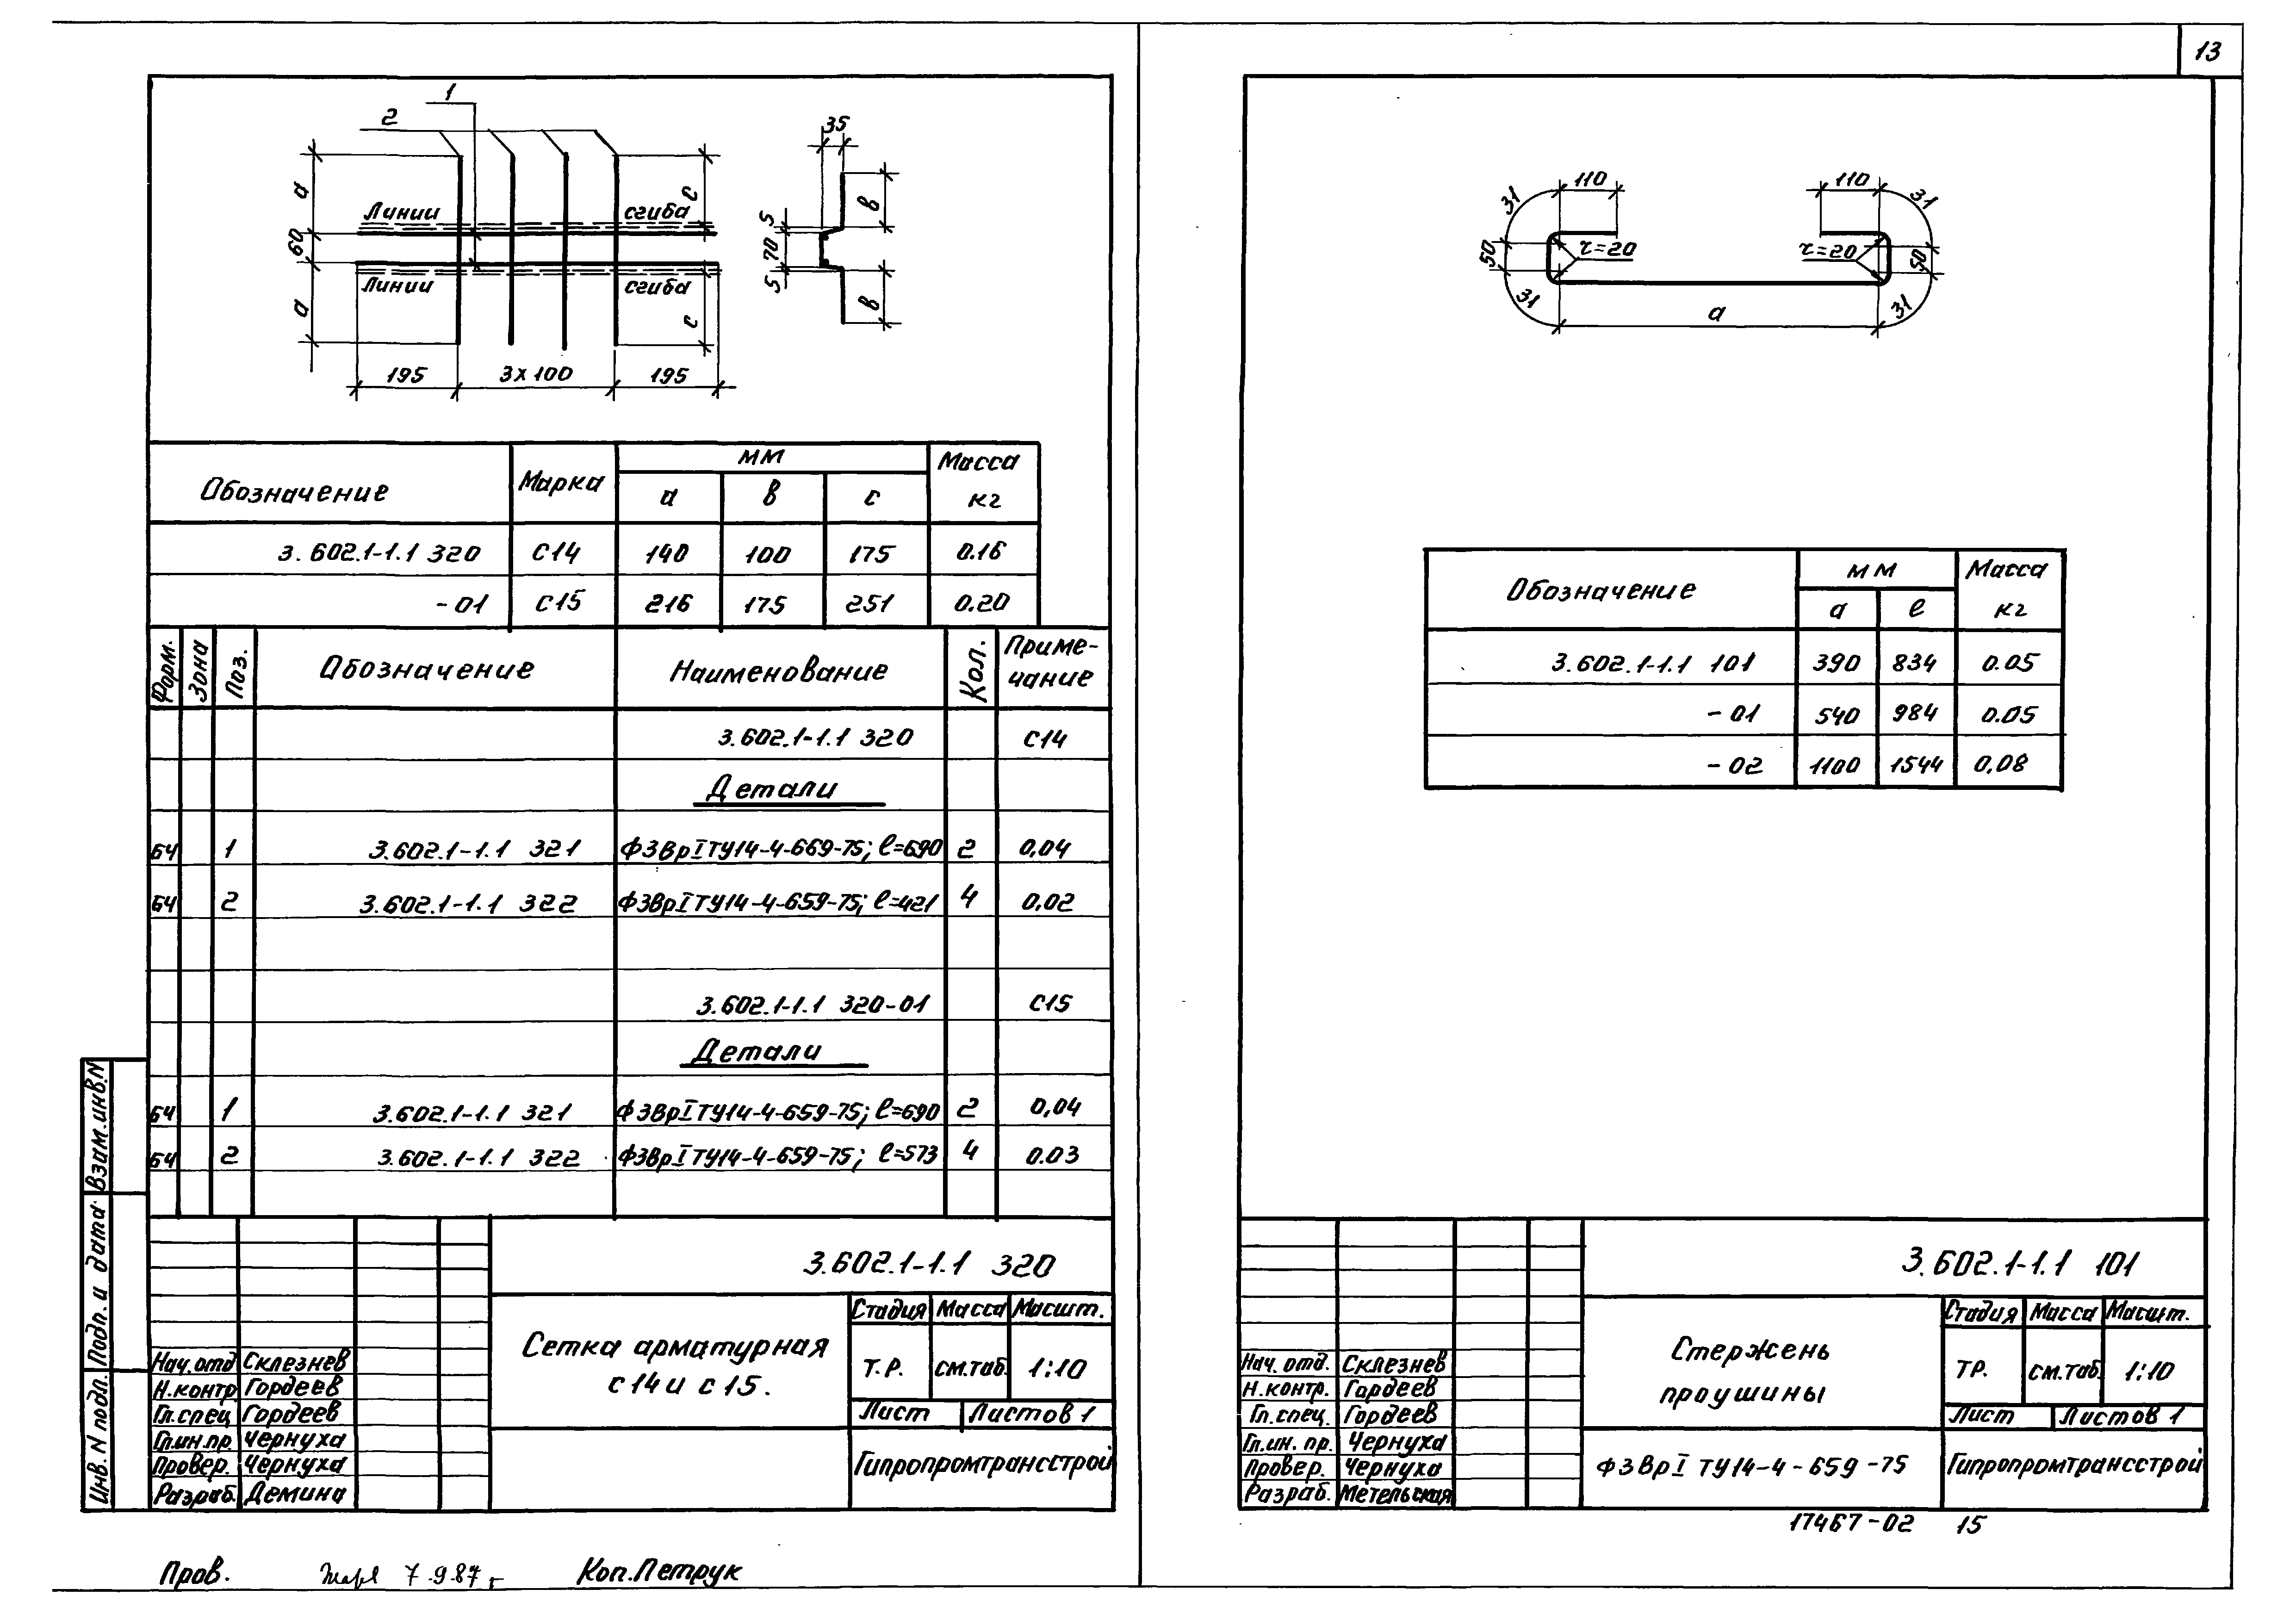 13
1
2
35
а
60
а
Линии сгиба
Линии сгиба
с
с
5
70
5
в
в
195 3х100 195
Обозначение Марка мм Масса кг
а в с
3.602.1-1.1 320 С14 140 100 175 0.16
-01 С15 216 175 251 0.20
Форм. Зона Поз. Обозначение Наименование Кол. Приме-
чание
3.602.1-1.1 320 С14
Детали
БЧ 1 3.602.1-1.1 321 Ф3ВрI ТУ14-4-669-75; ℓ=690 2 0,04
БЧ 2 3.602.1-1.1 322 Ф3ВрI ТУ14-4-659-75; ℓ=421 4 0,02
3.602.1-1.1 320-01 С15
Детали
БЧ 1 3.602.1-1.1 321 Ф3ВрI ТУ14-4-659-75; ℓ=690 2 0,04
БЧ 2 3.602.1-1.1 322 Ф3ВрI ТУ14-4-659-75; ℓ=573 4 0.03
Взам.инв.N
Подп. и дата
Инв. N подл.
3.602.1-1.1 320
Сетка арматурная
с 14 и с 15.
Стадия Масса Масшт.
Т.Р. см.таб. 1:10
Лист Листов 1
Гипропромтрансстрой
Нач.отд Склезнев
Н.контр Гордеев
Гл.спец Гордеев
Гл.ин.пр. Чернуха
Провер. Чернуха
Разраб. Демина
Пров. 7.9.87г Коп.Петрук
31 110 110 31
50 r=20 r=20 50
31 а 31
Обозначение мм Масса кг
а ℓ
3.602.1-1.1 101 390 834 0.05
-01 540 984 0.05
-02 1100 1544 0,08
3.602.1-1.1 101
Стержень
проушины
Стадия Масса Масшт.
ТР. см.таб. 1:10
Лист Листов 1
Ф3ВрI ТУ14-4-659-75
Гипропромтрансстрой
Нач. отд. Склезнев
Н.контр. Гордеев
Гл.спец. Гордеев
Гл.ин. пр. Чернуха
Провер. Чернуха
Разраб. Метельская
17467-02 15